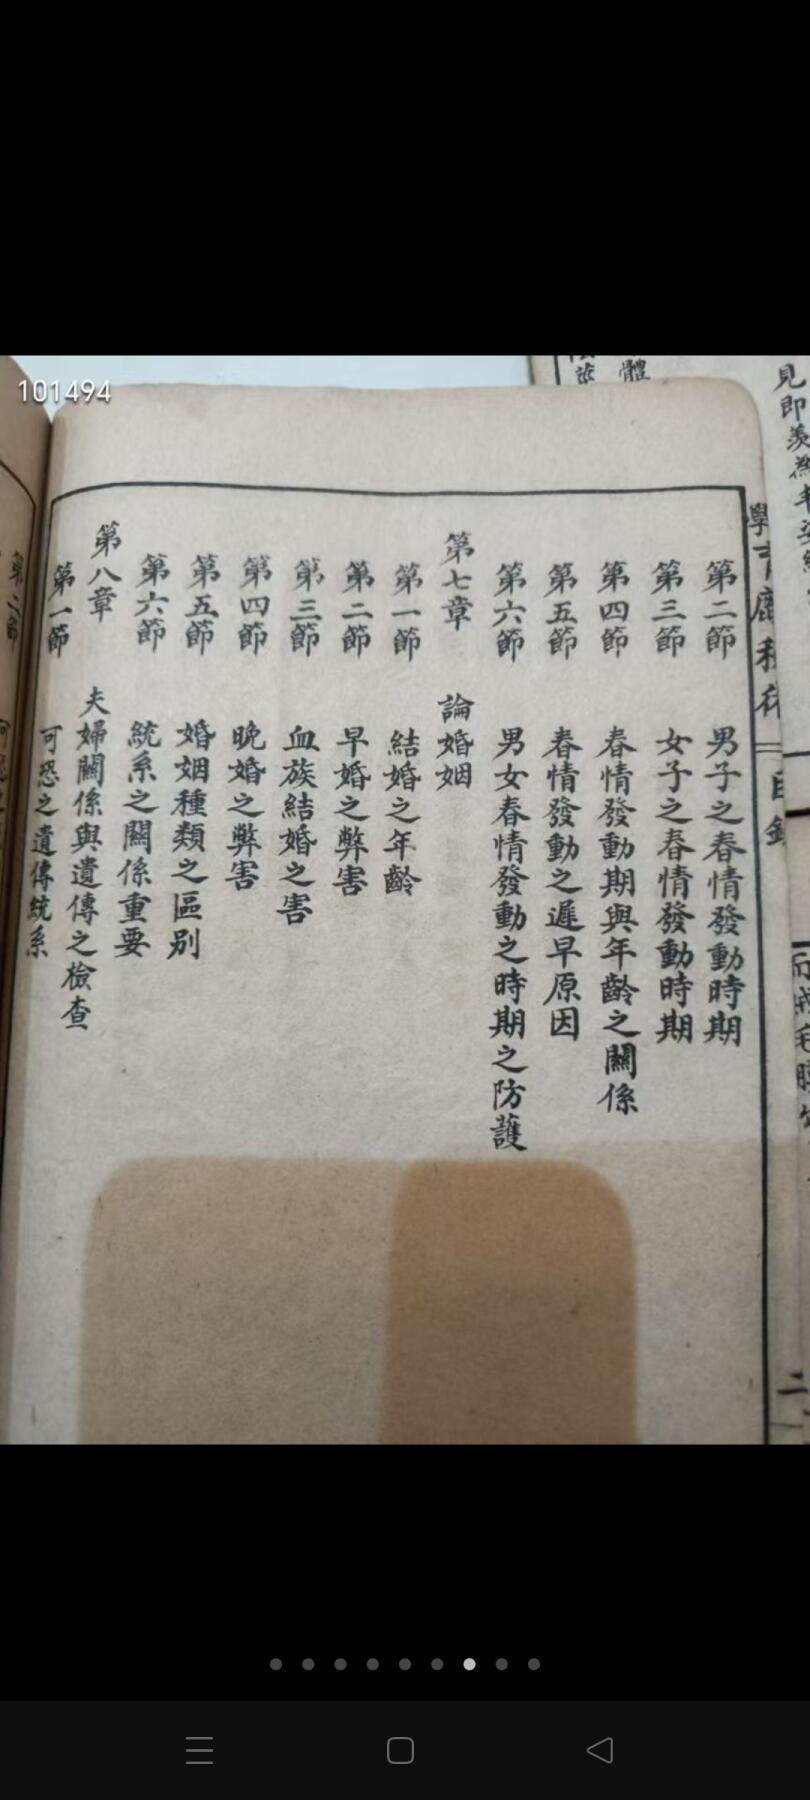 101494
第二節 男子之春情發動時期
第三節 女子之春情發動時期
第四節 春情發動期與年齡之關係
第五節 春情發動之遲早原因
第六節 男女春情發動之時期之防護
第七章 論婚姻
第一節 結婚之年齡
第二節 早婚之弊害
第三節 血族結婚之害
第四節 晚婚之弊害
第五節 婚姻種類之區別
第六節 統系之關係重要
第八章 夫婦關係與遺傳之檢查
第一節 可恐之遺傳統系
第二節
目錄
二
體
見即羨